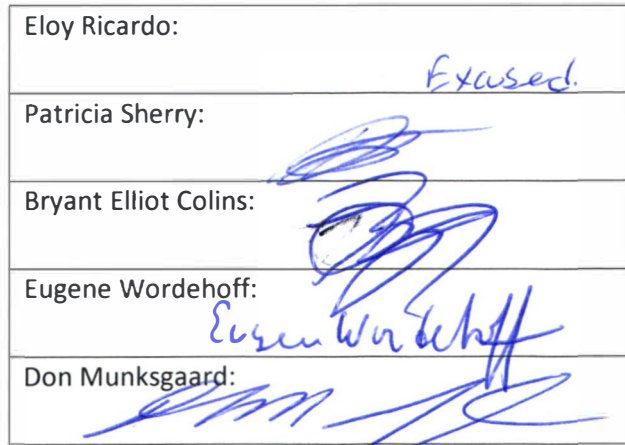 Eloy Ricardo:
Excused.
Patricia Sherry:
Bryant Elliot Colins:
Eugene Wordehoff:
Eugen Wordehoff
Don Munksgaard: